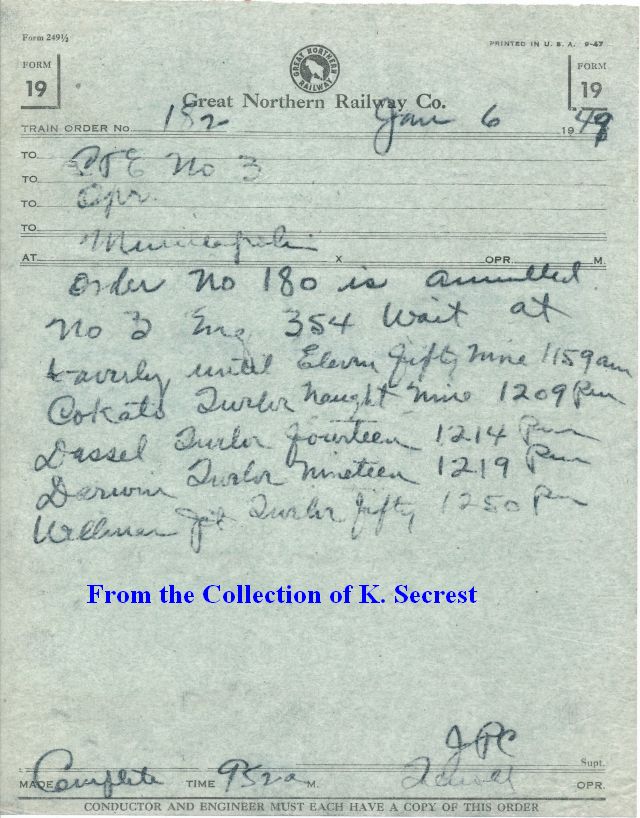 Form 249½
PRINTED IN U. S. A. 9-47
FORM
19
GREAT NORTHERN RAILWAY
FORM
19
Great Northern Railway Co.
TRAIN ORDER No. 182 Jan 6 1949
TO C&E No 3
TO Opr.
TO
TO
AT Minneapolis X OPR. M.
Order No 180 is annulled
No 3 Eng 354 Wait at
Waverly until Eleven Fifty Nine 1159am
Cokato Twelve Naught Nine 1209 Pm
Dassel Twelve Fourteen 1214 Pm
Darwin Twelve Nineteen 1219 Pm
Willmar Jct Twelve Fifty 1250 Pm
From the Collection of K. Secrest
JPC
Supt.
MADE Complete TIME 952 a M. OPR.
CONDUCTOR AND ENGINEER MUST EACH HAVE A COPY OF THIS ORDER